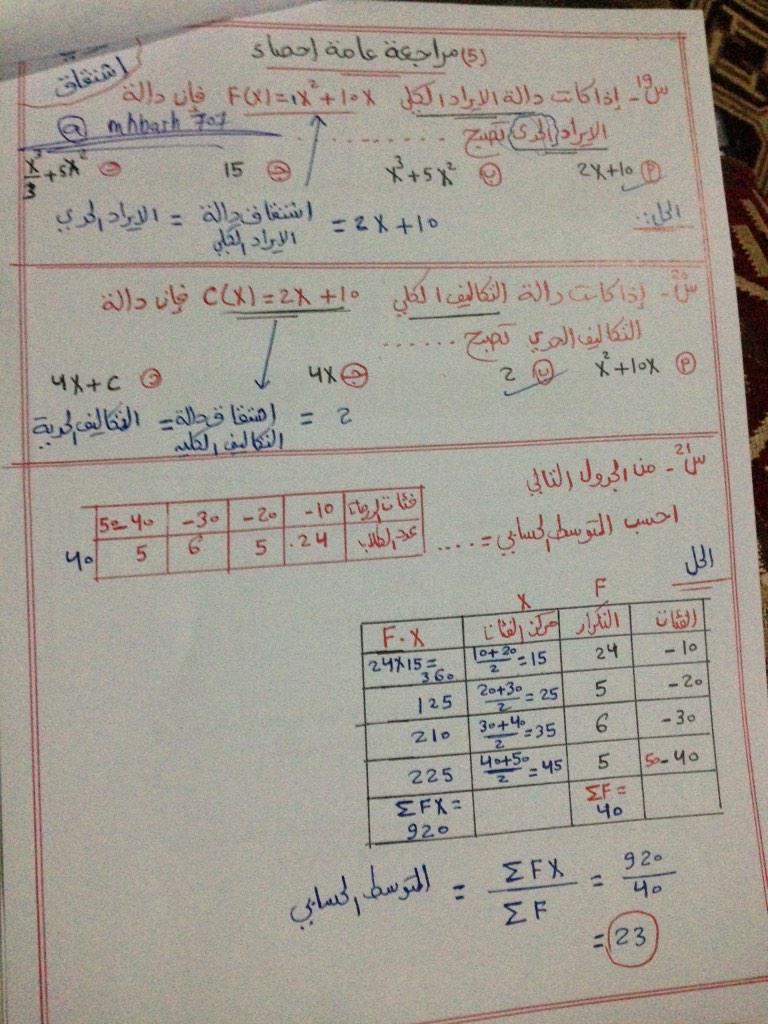 (5) مراجعة عامة إحصاء
اشتقاق
س19- إذا كانت دالة الإيراد الكلي F(X)=1X²+10X فإن دالة
الإيراد الحدي تصبح ..........
@ mhbash 707
أ 2X+10 ب X³+5X² ج 15 د X³/3+5X²
الحل:..
الإيراد الحدي = اشتقاق دالة الإيراد الكلي = 2X+10
س20- إذا كانت دالة التكاليف الكلي C(X)=2X+10 فإن دالة
التكاليف الحدي تصبح ......
أ X²+10X ب 2 ج 4X د 4X+C
التكاليف الحدية = اشتقاق دالة التكاليف الكليه = 2
س21- من الجدول التالي
احسب المتوسط الحسابي = ....
فئات الدرجات 10- 20- 30- 40-50
عدد الطلاب 24 5 6 5 40
الحل
F X
الفئات التكرار مركز الفئات F.X
10- 24 (10+20)/2=15 24X15=360
20- 5 (20+30)/2=25 125
30- 6 (30+40)/2=35 210
40-50 5 (40+50)/2=45 225
ΣF=40 ΣFX=920
المتوسط الحسابي = ΣFX/ΣF = 920/40
= 23